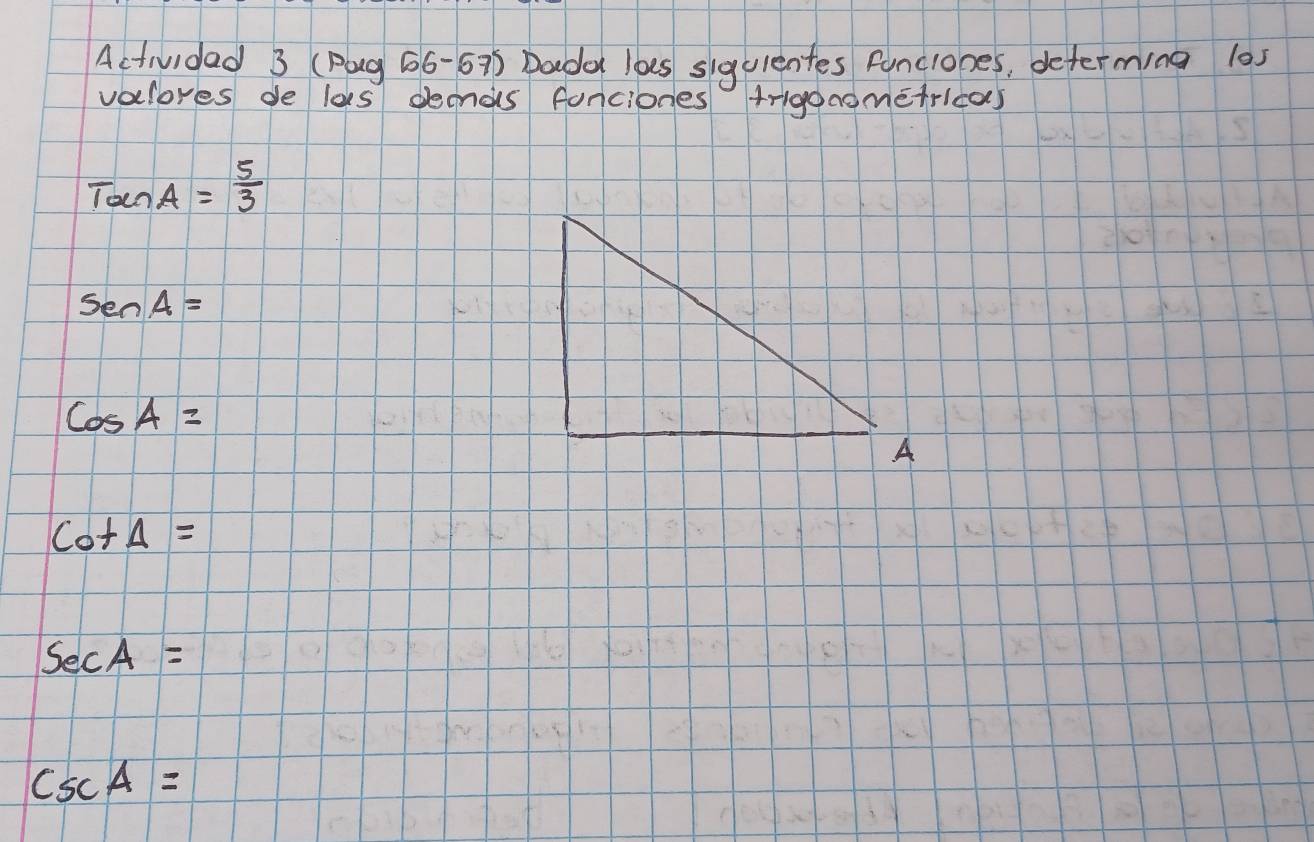 Actividad 3 (Pag 56-57) Dada las siguientes funciones, determina los
valores de las demás funciones trigonométricas
Tan A = 5/3
Sen A =
Cos A =
A
Cot A =
Sec A =
Csc A =